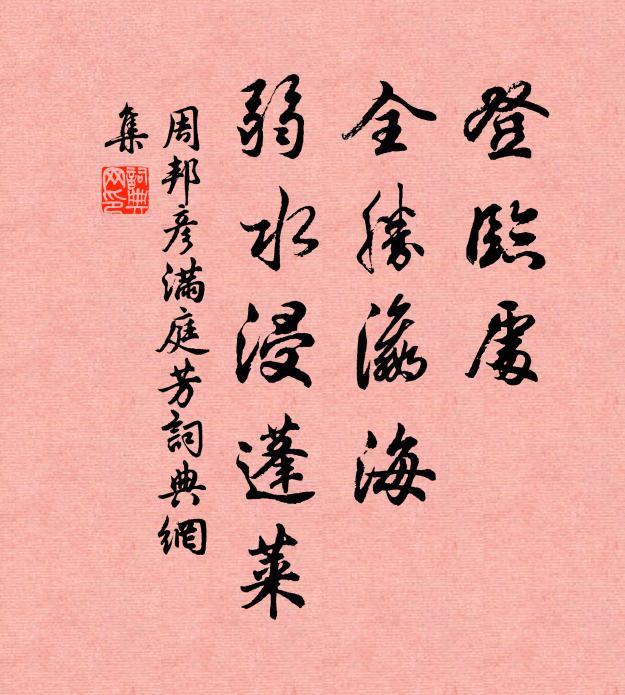 登臨處
全勝瀛海
弱水浸蓬萊
周邦彥滿庭芳詞典網
集
詞典
网印